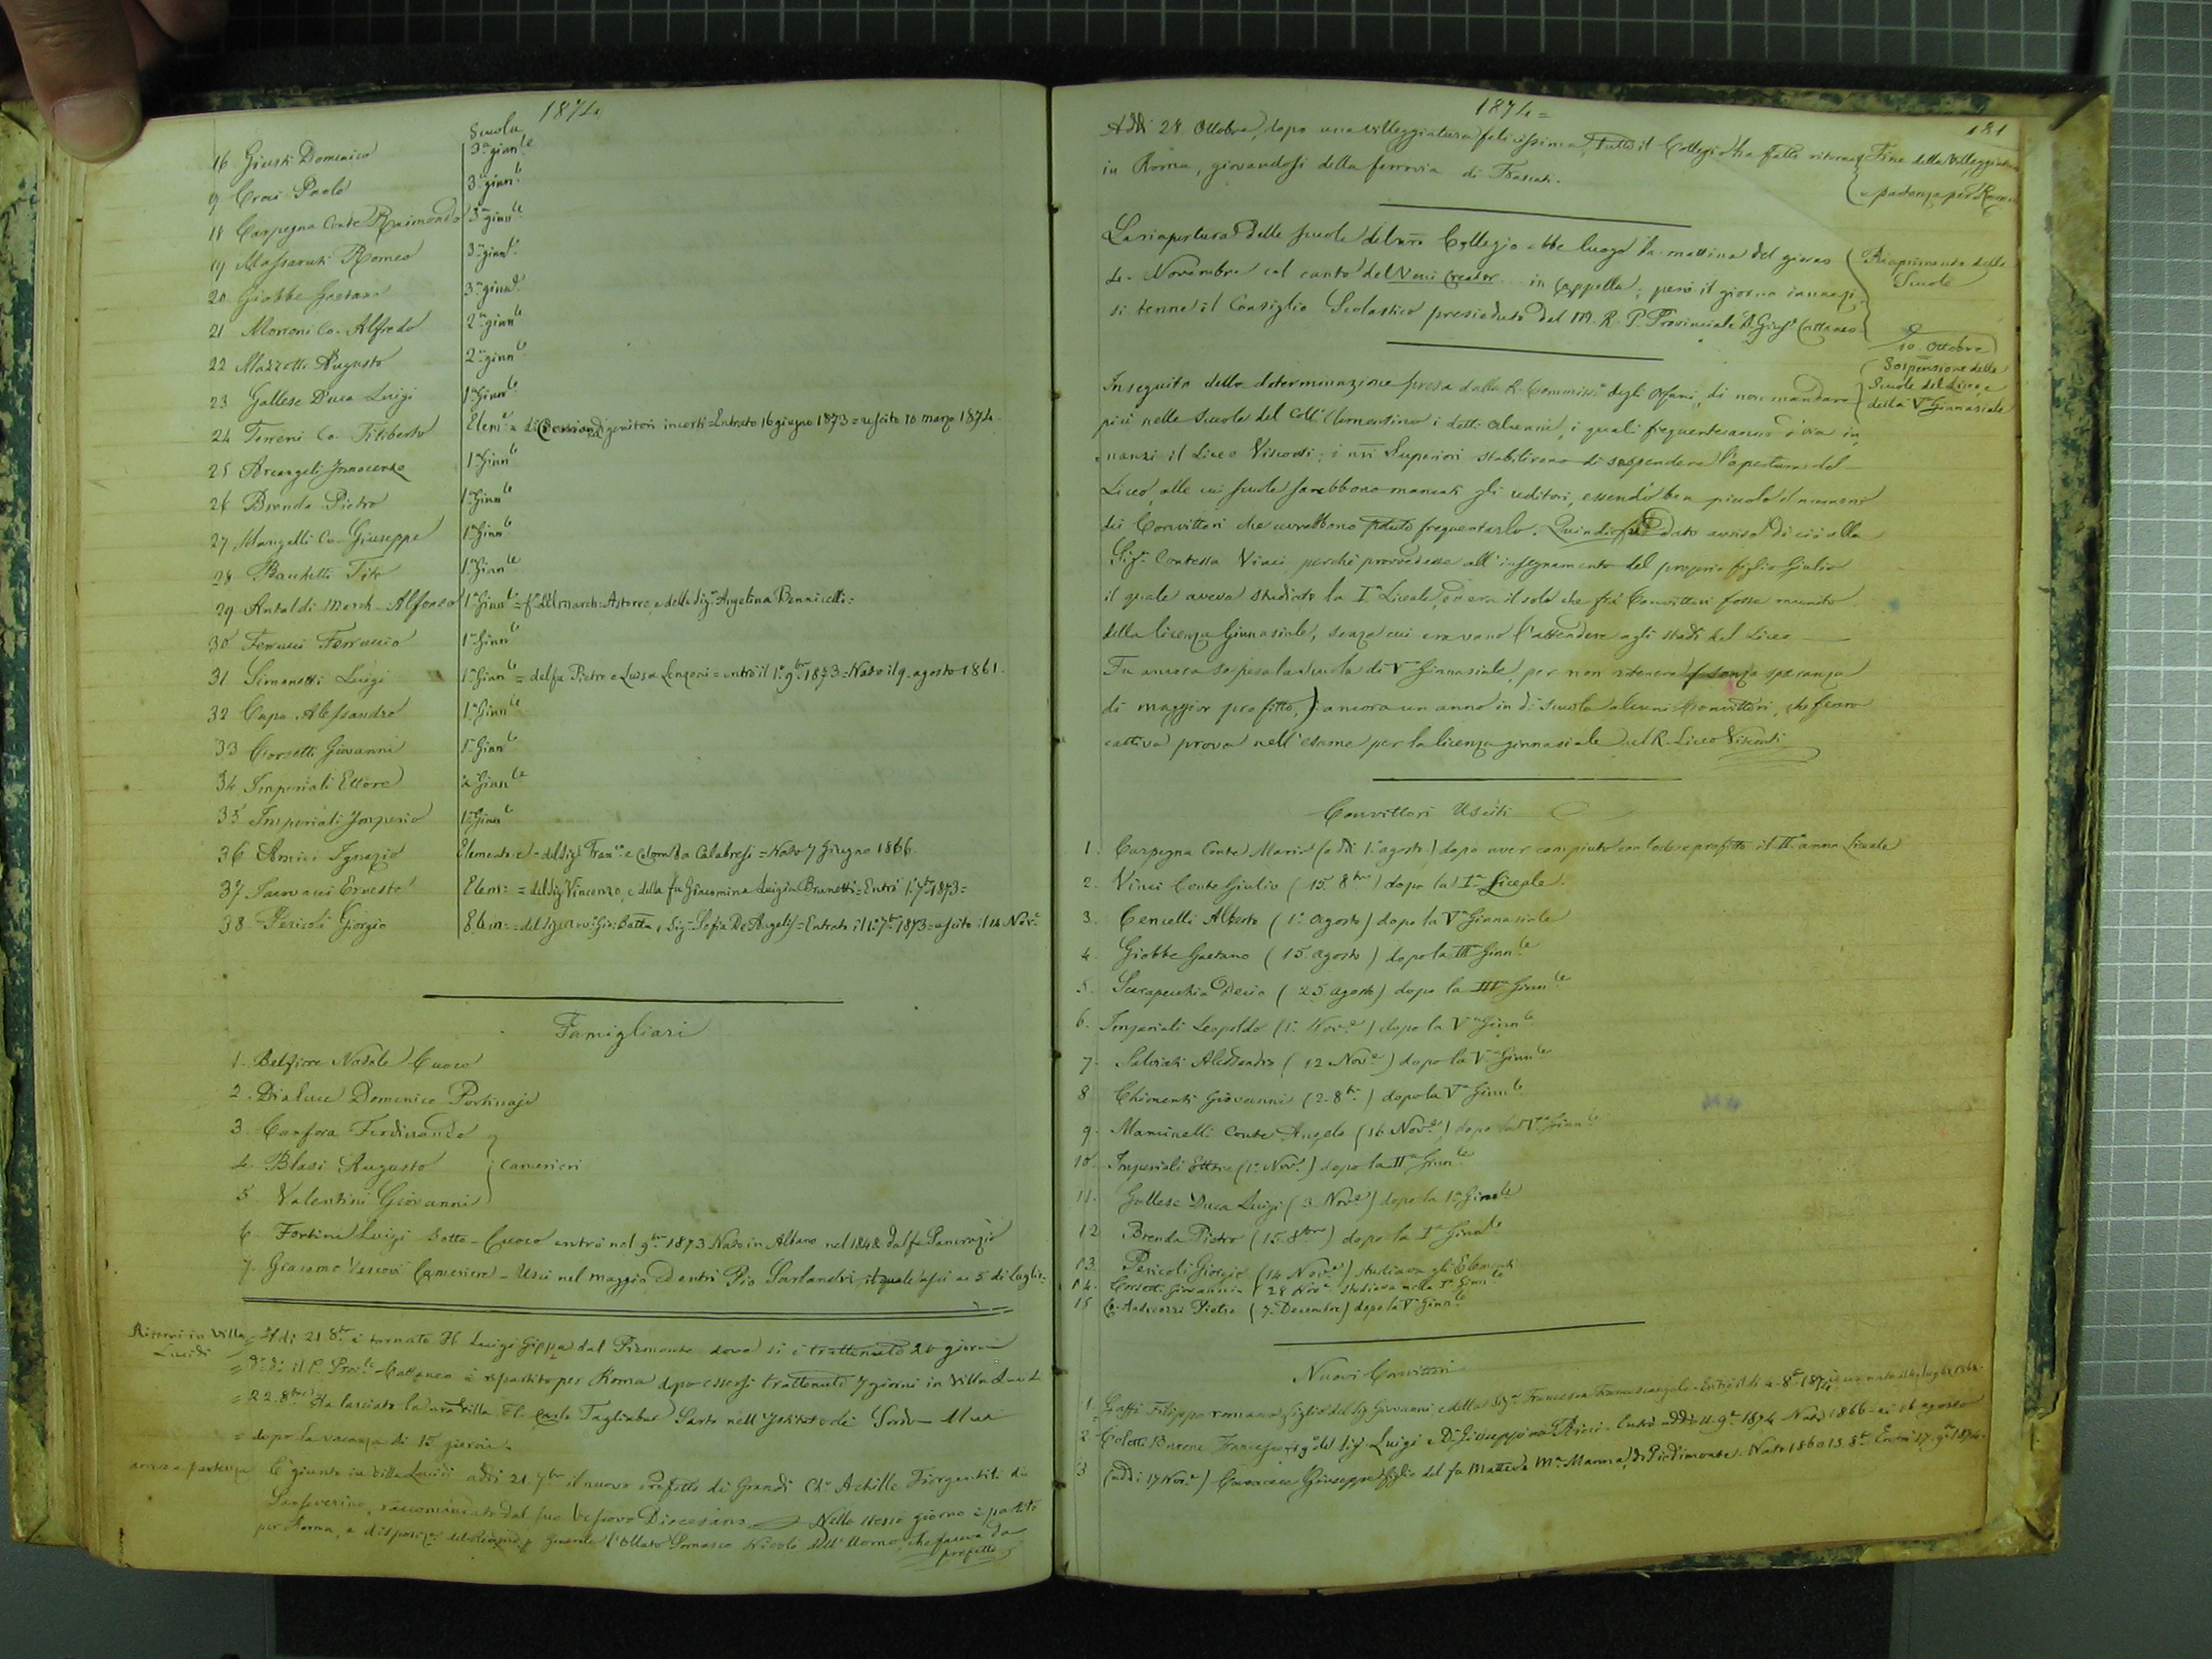 1874
Scuola
16 Giusti Domenico 3.a ginn.le
9 Croci Paolo 3.a ginn.le
18 Carpegna Conte Raimondo 3.a ginn.le
19 Massaruti Romeo 3.a ginn.le
20 Giobbe Gaetano 3.a ginn.le
21 Morroni Co. Alfredo 2.a ginn.le
22 Mazzotti Augusto 2.a ginn.le
23 Gallese Duca Luigi 1.a Ginn.le
24 Terreni Co. Filiberto Elem.e di genitori incerti = Entrato 16 giugno 1873 = uscito 10 marzo 1874.
25 Arcangeli Innocenzo 1.a Ginn.le
26 Brenda Pietro 1.a Ginn.le
27 Mangelli Co. Giuseppe 1.a Ginn.le
28 Banchetti Tito 1.a Ginn.le
29 Antaldi March. Alfonso 1.a Ginn.le = f.o del march. Astorre, e della Sig.a Angelina Bennicelli =
30 Ferrucci Ferruccio 1.a Ginn.le
31 Simonetti Luigi 1.a Ginn.le = del fu Pietro e Luisa Lenzoni = entrò il 1.o 9bre 1873 = Nato il 9. agosto 1861.
32 Capo Alessandro 1.a Ginn.le
33 Corsetti Giovanni 1.a Ginn.le
34 Imperiali Ettore 2.a Ginn.le
35 Imperiali Imperio 1.a Ginn.le
36 Amici Ignazio Elementare = del Sig.r Fran.co e Colomba Calabresi = Nato 7 Giugno 1866.
37 Iacovacci Ernesto Elem: = del Sig. Vincenzo, e della fu Giacomina Luigia Brunetti = Entrò 1.o 7bre 1873 =
38 Pericoli Giorgio Elem: = del Sig. Gio: Batta, e Sig.a Sofia De Angelis = Entrato il 1.o 7bre 1873 = uscito il 14 Nov.e
Famigliari
1. Belfiore Natale Cuoco
2. Dialuce Domenico Portinajo
3. Canfora Ferdinando
4. Blasi Augusto Camerieri
5. Valentini Giovanni
6. Fortini Luigi Sotto-Cuoco entrò nel 9bre 1873 Nato in Albano nel 1848 dal fu Pancrazio
7. Giacomo Vescovi Cameriere - Uscì nel maggio ed entrò Pio Sarlandri, il quale uscì ai 5 di luglio.
Ritorni in Villa Lucidi = Al dì 21 8bre è tornato Fl. Luigi Gippa dal Piemonte dove si è trattenuto 20 giorni
= D.o dì il P. Prov.le Cattaneo è ripartito per Roma dopo essersi trattenuto 7 giorni in Villa Lucidi
= 22. 8bre Ha lasciato la nra Villa Fl. Carlo Tagliabue Sarto nell'Istituto de' Sordi-Muti
= dopo la vacanza di 15 giorni.
arrivo e partenza È giunto in Villa Lucidi addì 21. 7bre il nuovo Prefetto di Grandi Ch.o Achille Fiorgentili di
Sanseverino, raccomandato dal suo Vescovo Diocesano. Nello stesso giorno è partito
per Roma, a disposiz.e del Rev.mo P. Generale l'Ollato Somasco Nicolò Dell'Uomo, che faceva da
prefetto
1874 =
121
Addì 28 Ottobre, dopo una villeggiatura felicissima, tutto il Collegio ha fatto ritorno Fine della Villeggiatura
in Roma, giovandosi della ferrovia di Frascati. e partenza per Roma
La riapertura delle scuole del nro Collegio ebbe luogo la mattina del giorno Riaprimento delle
4. Novembre col canto del Veni Creator in Cappella; però il giorno innanzi Scuole
si tenne il Consiglio Scolastico presieduto dal M. R. P. Provinciale D. Gius.e Cattaneo.
10. Ottobre
Sospensione delle
Scuole del Liceo, e
della V.a Ginnasiale
In seguito della determinazione presa dalla R. Commiss.e degli Orfani, di non mandare
più nelle scuole del Coll.o Clementino i detti alunni, i quali frequenteranno d'ora in
nanzi il Liceo Visconti; i nri Superiori stabilirono di sospendere l'apertura del
Liceo, alle cui scuole sarebbono mancati gli uditori, essendo ben piccolo il numero
dei Convittori che avrebbono potuto frequentarlo. Quindi fu dato avviso di ciò alla
Sig.a Contessa Vinci perchè provvedesse all'insegnamento del proprio figlio Giulio
il quale aveva studiato la I.a Liceale, ed era il solo che fra' Convittori fosse munito
della licenza Ginnasiale, senza cui era vano l'attendere agli studi del Liceo
Fu ancora sospesa la Scuola di V.a Ginnasiale, per non ritenere senza speranza
di maggior profitto, ancora un anno in d.a scuola alcuni Convittori, che fecero
cattiva prova nell'esame per la licenza ginnasiale nel R. Liceo Visconti
Convittori Usciti
1. Carpegna Conte Mario (addì 1.o agosto) dopo aver compiuto con lode e profitto il II.o anno Liceale
2. Vinci Conte Giulio (15. 8bre) dopo la I.a Liceale.
3. Cencelli Alberto (1.o agosto) dopo la V.a Ginnasiale
4. Giobbe Gaetano (15. agosto) dopo la III.a Ginn.le
5. Scarapecchia Decio (25. agosto) dopo la III.a Ginn.le
6. Imperiali Leopoldo (1.o Nov.e) dopo la V.a Ginn.le
7. Salviati Alessandro (12 Nov.e) dopo la V.a Ginn.le
8. Chimenti Giovanni (2. 8bre) dopo la V.a Ginn.le
9. Mancinelli Conte Angelo (16 Nov.e) dopo la V.a Ginn.le
10. Imperiali Ettore (1.o Nov.e) dopo la II.a Ginn.le
11. Gallese Duca Luigi (3 Nov.e) dopo la 1.a Ginn.le
12 Brenda Pietro (15. 8bre) dopo la I.a Ginn.le
13. Pericoli Giorgio (14 Nov.e) studiava gli Elementi
14. Corsetti Giovanni (28 Nov.e studiava nella I.a Ginn.le
15 Co. Andreozzi Pietro (7. Decembre) dopo la V.a Ginn.le
Nuovi Convittori
1. Gaffi Filippo romano figlio del Sig. Giovanni e della Sig.a Francesca Francescangeli - Entrò il dì 4. 8bre 1874
2. Coletti Barone Francesco figo del Sig. Luigi e D.a Giuseppina Ricci - Entrò addì 11. 9bre 1874 Nato 1866 - ai 16 agosto
3 (addì 17 Nov.e) Giuseppe figlio del fu Matteo e M.a Manna, di Piedimonte. Nato 1860 15. 8bre Entrò 17. 9bre 1874.